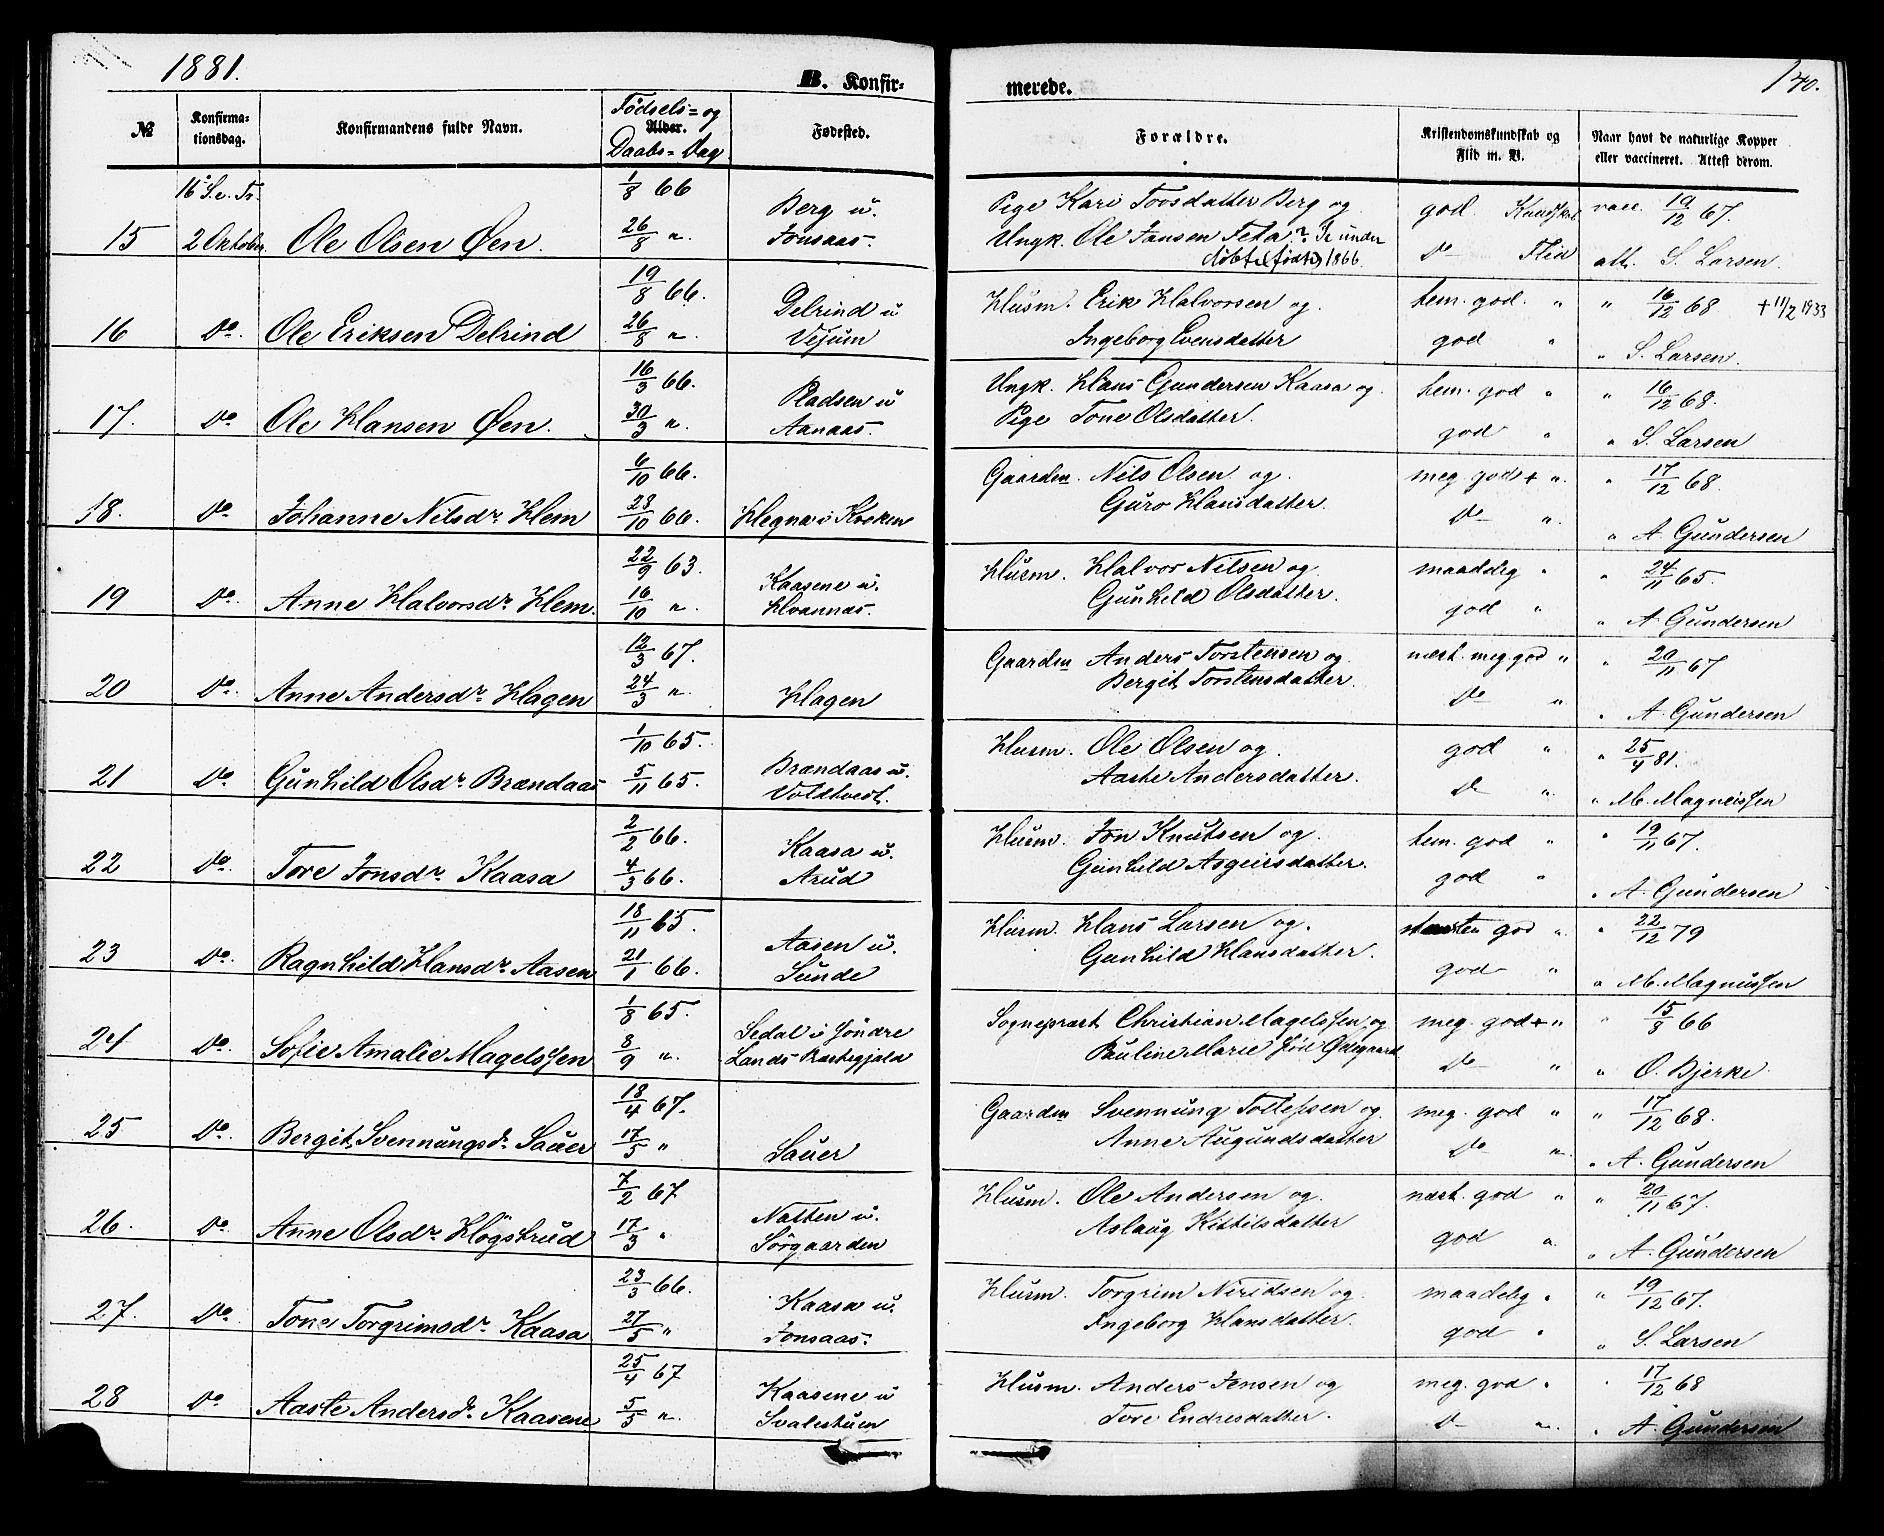 1881.
B. Konfir-
merede.
140.
№ Konfirma-tionsdag. Konfirmandens fulde Navn. Fødsels- og Alder. Daabs-Dag Fødested. Forældre. Kristendomskundskab og Flid m. V. Naar havt de naturlige Kopper eller vaccineret. Attest derom.
16 S. e. Tr. 1/8 66 Berg u. Pige Kari Tovsdatter Berg og god Kundskab vacc. 19/12 67.
15 2 Oktober. Ole Olsen Øen. 26/8 " Jonsaas. Ungk. Ole Jansen Se under Do Flid att. S. Larsen.
døbte (fødte) 1866
19/8 66. Delrind u Husm. Erik Halvorsen og tem. god. " " 16/12 68 + 11/2 1933
16 Do. Ole Eriksen Delrind 26/8 ". Vejum Ingeborg Evensdatter god " " S. Larsen.
16/3 66. Pladsen u Ungk. Hans Gundersen Kaasa og tem. god " " 16/12 68.
17. Do Ole Hansen Øen. 30/3 ". Aanaas. Pige Tone Olsdatter. god " " S. Larsen
6/10 66. Gaardm. Nils Olsen og. meg. god + ". " 17/12 68.
18. Do Johanne Nilsdr. Hem 28/10 66. Hegna i Kroken Guro Hansdatter. Do ". " A. Gundersen
22/9 63. Kaasene u. Husm. Halvor Nilsen og maadelig " " 24/11 65.
19 Do. Anne Halvorsdr. Hem. 16/10 ". Hvannaas. Gunhild Olsdatter. god " " A. Gundersen
12/3 67. Gaardm Anders Torstensen og næst. meg. god " " 20/11 67
20 Do. Anne Andersdr. Hagen 24/3 ". Hagen Bergit Torstensdatter. Do " " A. Gundersen
1/10 65. Brændaas u. Husm. Ole Olsen og. god " " 25/4 81.
21 Do Gunhild Olsdr. Brændaas 5/11 65. Voldtvedt. Aaste Andersdatter. Do ". " M. Magnussen
2/2 66. Kaasa u. Husm. Jon Knutsen og. tem. god " " 19/11 67.
22 Do. Tore Jonsdr. Kaasa 4/3 66. Arud Gunhild Asgeirsdatter. god " " A. Gundersen
18/11 65. Aasen u. Husm. Hans Larsen og. næsten god ". " 22/12 79
23 Do. Ragnhild Hansdr. Aasen 21/1 66. Sunde Gunhild Hansdatter. god " " M. Magnussen
1/8 65. Sedal i Søndre Sogneprest Christian Magelssen og meg. god + " " 15/8 66
24 Do. Sofie Amalie Magelssen 8/9 ". Lands Præstegjeld Pauline Marie født Ødegaard Do " " O. Bjerke
18/4 67. Gaardm Svennung Tollefsen og meg. god " " 17/12 68.
25 Do. Bergit Svennungsdr. Sauer 17/5 " Sauer Anne Augundsdatter Do ". " A. Gundersen
7/2 67 Natten u. Husm. Ole Andersen og. næst. god " " 20/11 67.
26. Do. Anne Olsdr. Høgstrud 17/3 " Sørgaarden Aslaug Kittilsdatter god " " A. Gundersen
23/3 66. Kaasa u. Husm. Torgrim Neridsen og. maadelig " " 19/12 67.
27. Do. Tone Torgrimsdr. Kaasa 27/5 " Jonsaas. Ingeborg Hansdatter. god " " S. Larsen
25/4 67 Kaasene u Husm. Anders Jensen og meg. god " " 17/12 68
28 Do Aaste Andersdr. Kaasene 5/5 ". Svalestuen Tore Endresdatter. Do ". " A. Gundersen